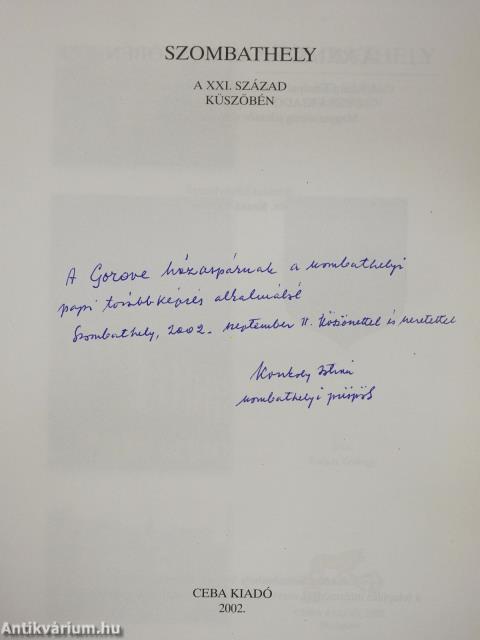 SZOMBATHELY
A XXI. SZÁZAD
KÜSZÖBÉN
A Gorove házaspárnak a szombathelyi
papi továbbképzés alkalmából
Szombathely, 2002. szeptember 11. Köszönettel és szeretettel
Konkoly István
szombathelyi püspök
CEBA KIADÓ
2002.
Antikvárium.hu